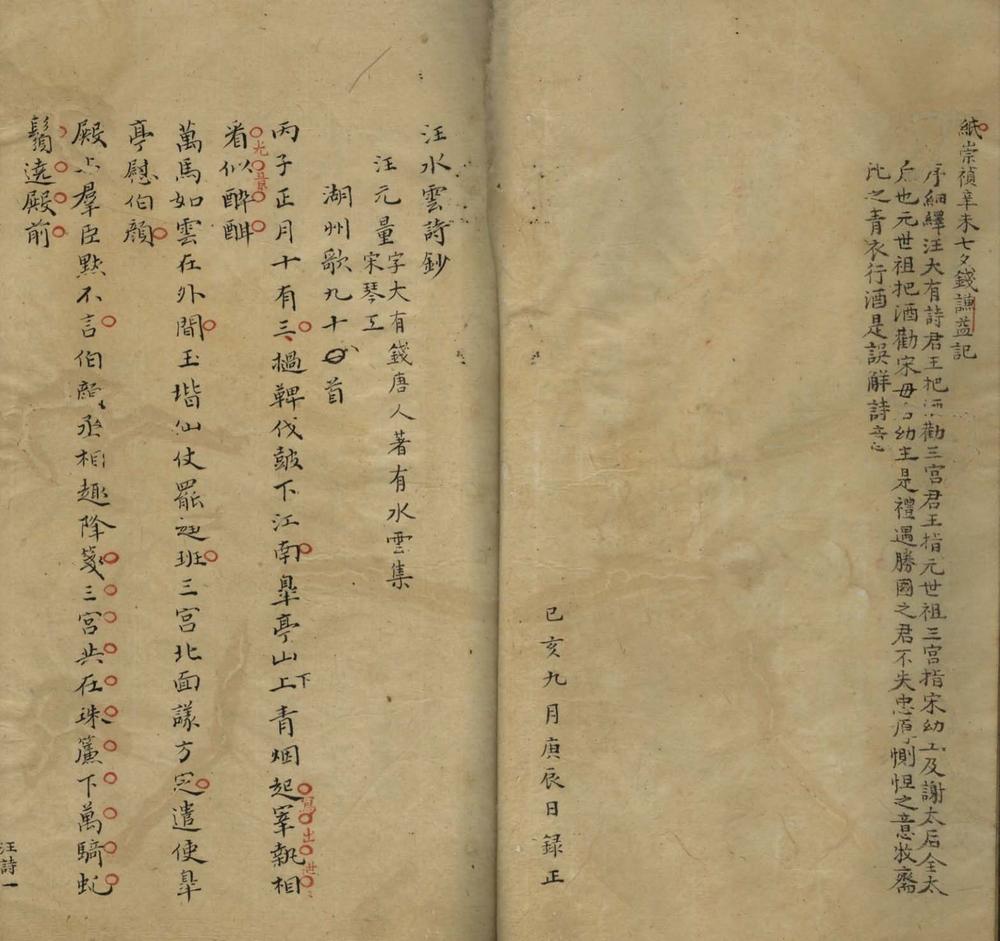 紙崇禎辛未七夕錢謙益記
序細繹汪大有詩君王把酒勸三宮君王指元世祖三宮指宋幼主及謝太后全太
后也元世祖把酒勸宋母后幼主是禮遇勝國之君不失忠厚惻怛之意牧齋
比之青衣行酒是誤解詩意也
己亥九月庚辰日錄正
汪水雲詩鈔
汪元量字大有錢唐人著有水雲集
宋琴工
湖州歌九十首
丙子正月十有三撾鞞伐鼓下江南皐亭山上下青烟起宰執相
看似醉酣
萬馬如雲在外間玉堦仙仗罷班三宮北面議方定遣使皐
亭慰伯顏
殿上羣臣默不言伯顏丞相趣降箋三宮共在珠簾下萬騎虬
鬚遶殿前
汪詩一